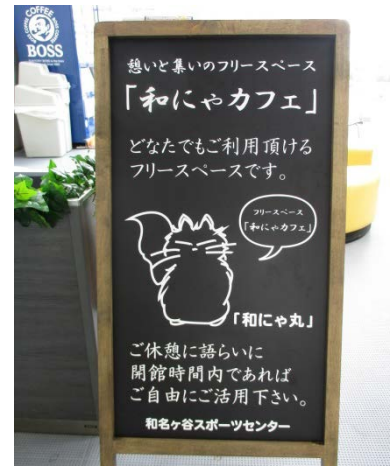 COFFEE
BOSS
憩いと集いのフリースペース
「和にゃカフェ」
どなたでもご利用頂ける
フリースペースです。
フリースペース
「和にゃカフェ」
「和にゃ丸」
ご休憩に語らいに
開館時間内であれば
ご自由にご活用下さい。
和名ヶ谷スポーツセンター